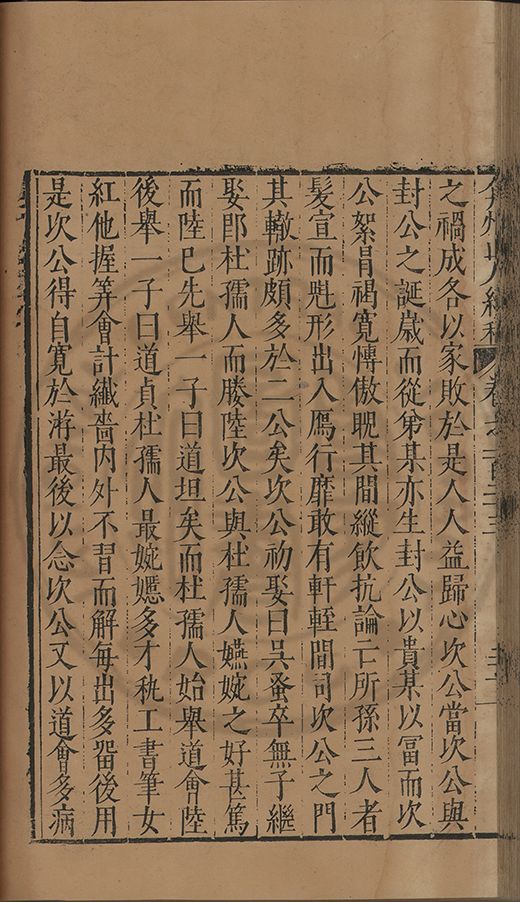 弇州山人續稿 卷之一百二十三
之禍成各以家敗於是人人益歸心次公當次公與
封公之誕歲而從弟某亦生封公以貴某以冨而次
公絮肙褐寛慱傲睨其間縱飲抗論亡所孫三人者
髪宣而䰟形出入鴈行靡敢有軒輊間司次公之門
其轍跡頗多於二公矣次公初娶曰吳蚤卒無子繼
娶郎杜孺人而媵陸次公與杜孺人嬿婉之好甚篤
而陸已先舉一子曰道坦矣而杜孺人始舉道會陸
後舉一子曰道貞杜孺人最婉嫕多才秇工書筆女
紅他握筭會計纎嗇内外不胥而解每出多畱後用
是次公得自寛於游最後以念次公又以道會多病